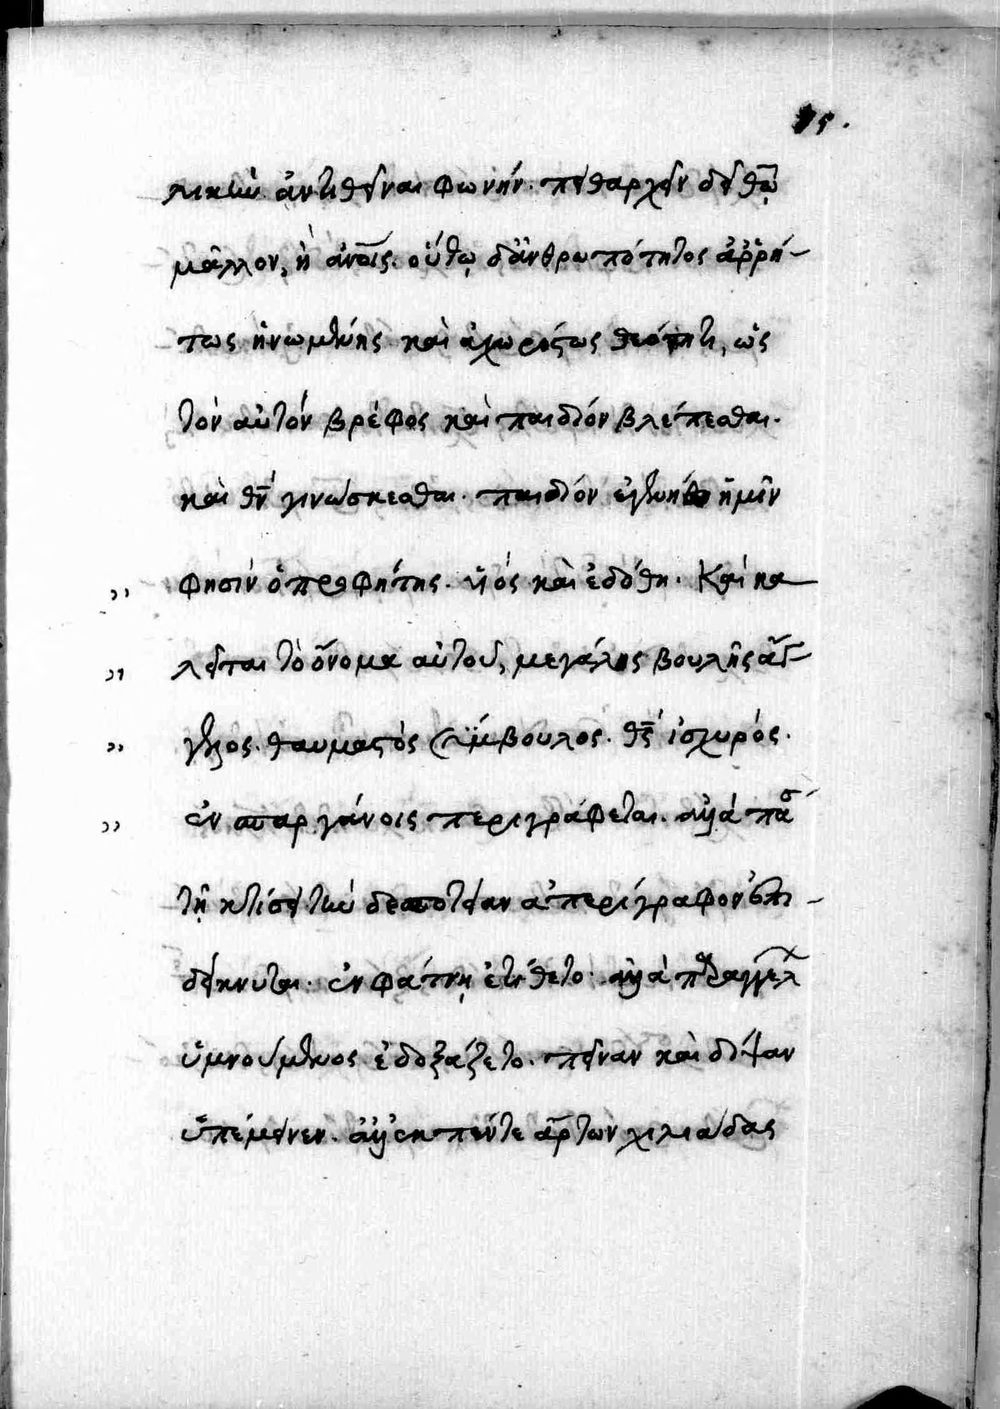 15.
λικὴν ἀντιθεῖναι φωνήν. πειθαρχεῖν δεῖ θῶ
μᾶλλον, ἢ ἀνοις. οὕτω δ' ἀνθρωπότητος ἀῤῥή-
τως ἡνωμένης καὶ ἀχωρίστως θεότητι, ὡς
τὸν αὐτὸν βρέφος καὶ παιδίον βλέπεσθαι.
καὶ θν γινώσκεσθαι. παιδίον ἐγεννήθη ἡμῖν
φησιν ὁ προφήτης. υἱός καὶ ἐδόθη. Καὶ κα
λεῖται τὸ ὄνομα αὐτοῦ, μεγάλης βουλῆς ἄγ-
γελος. θαυμαστὸς σύμβουλος. θς ἰσχυρός.
ἐν σπαργάνοις περιγράφεται. ἀλλὰ πάσ
τῇ κτίσει τὴν δεσποτείαν ἀπερίγραφον ἐπι-
δείκνυται. ἐν φάτνῃ ἐτίθετο. ἀλλὰ παρ' ἀγγελ
ὑμνούμενος ἐδοξάζετο. πεῖναν καὶ δίψαν
ὑπέμεινεν. ἀλλ' ἐκ πέντε ἄρτων χιλιάδας